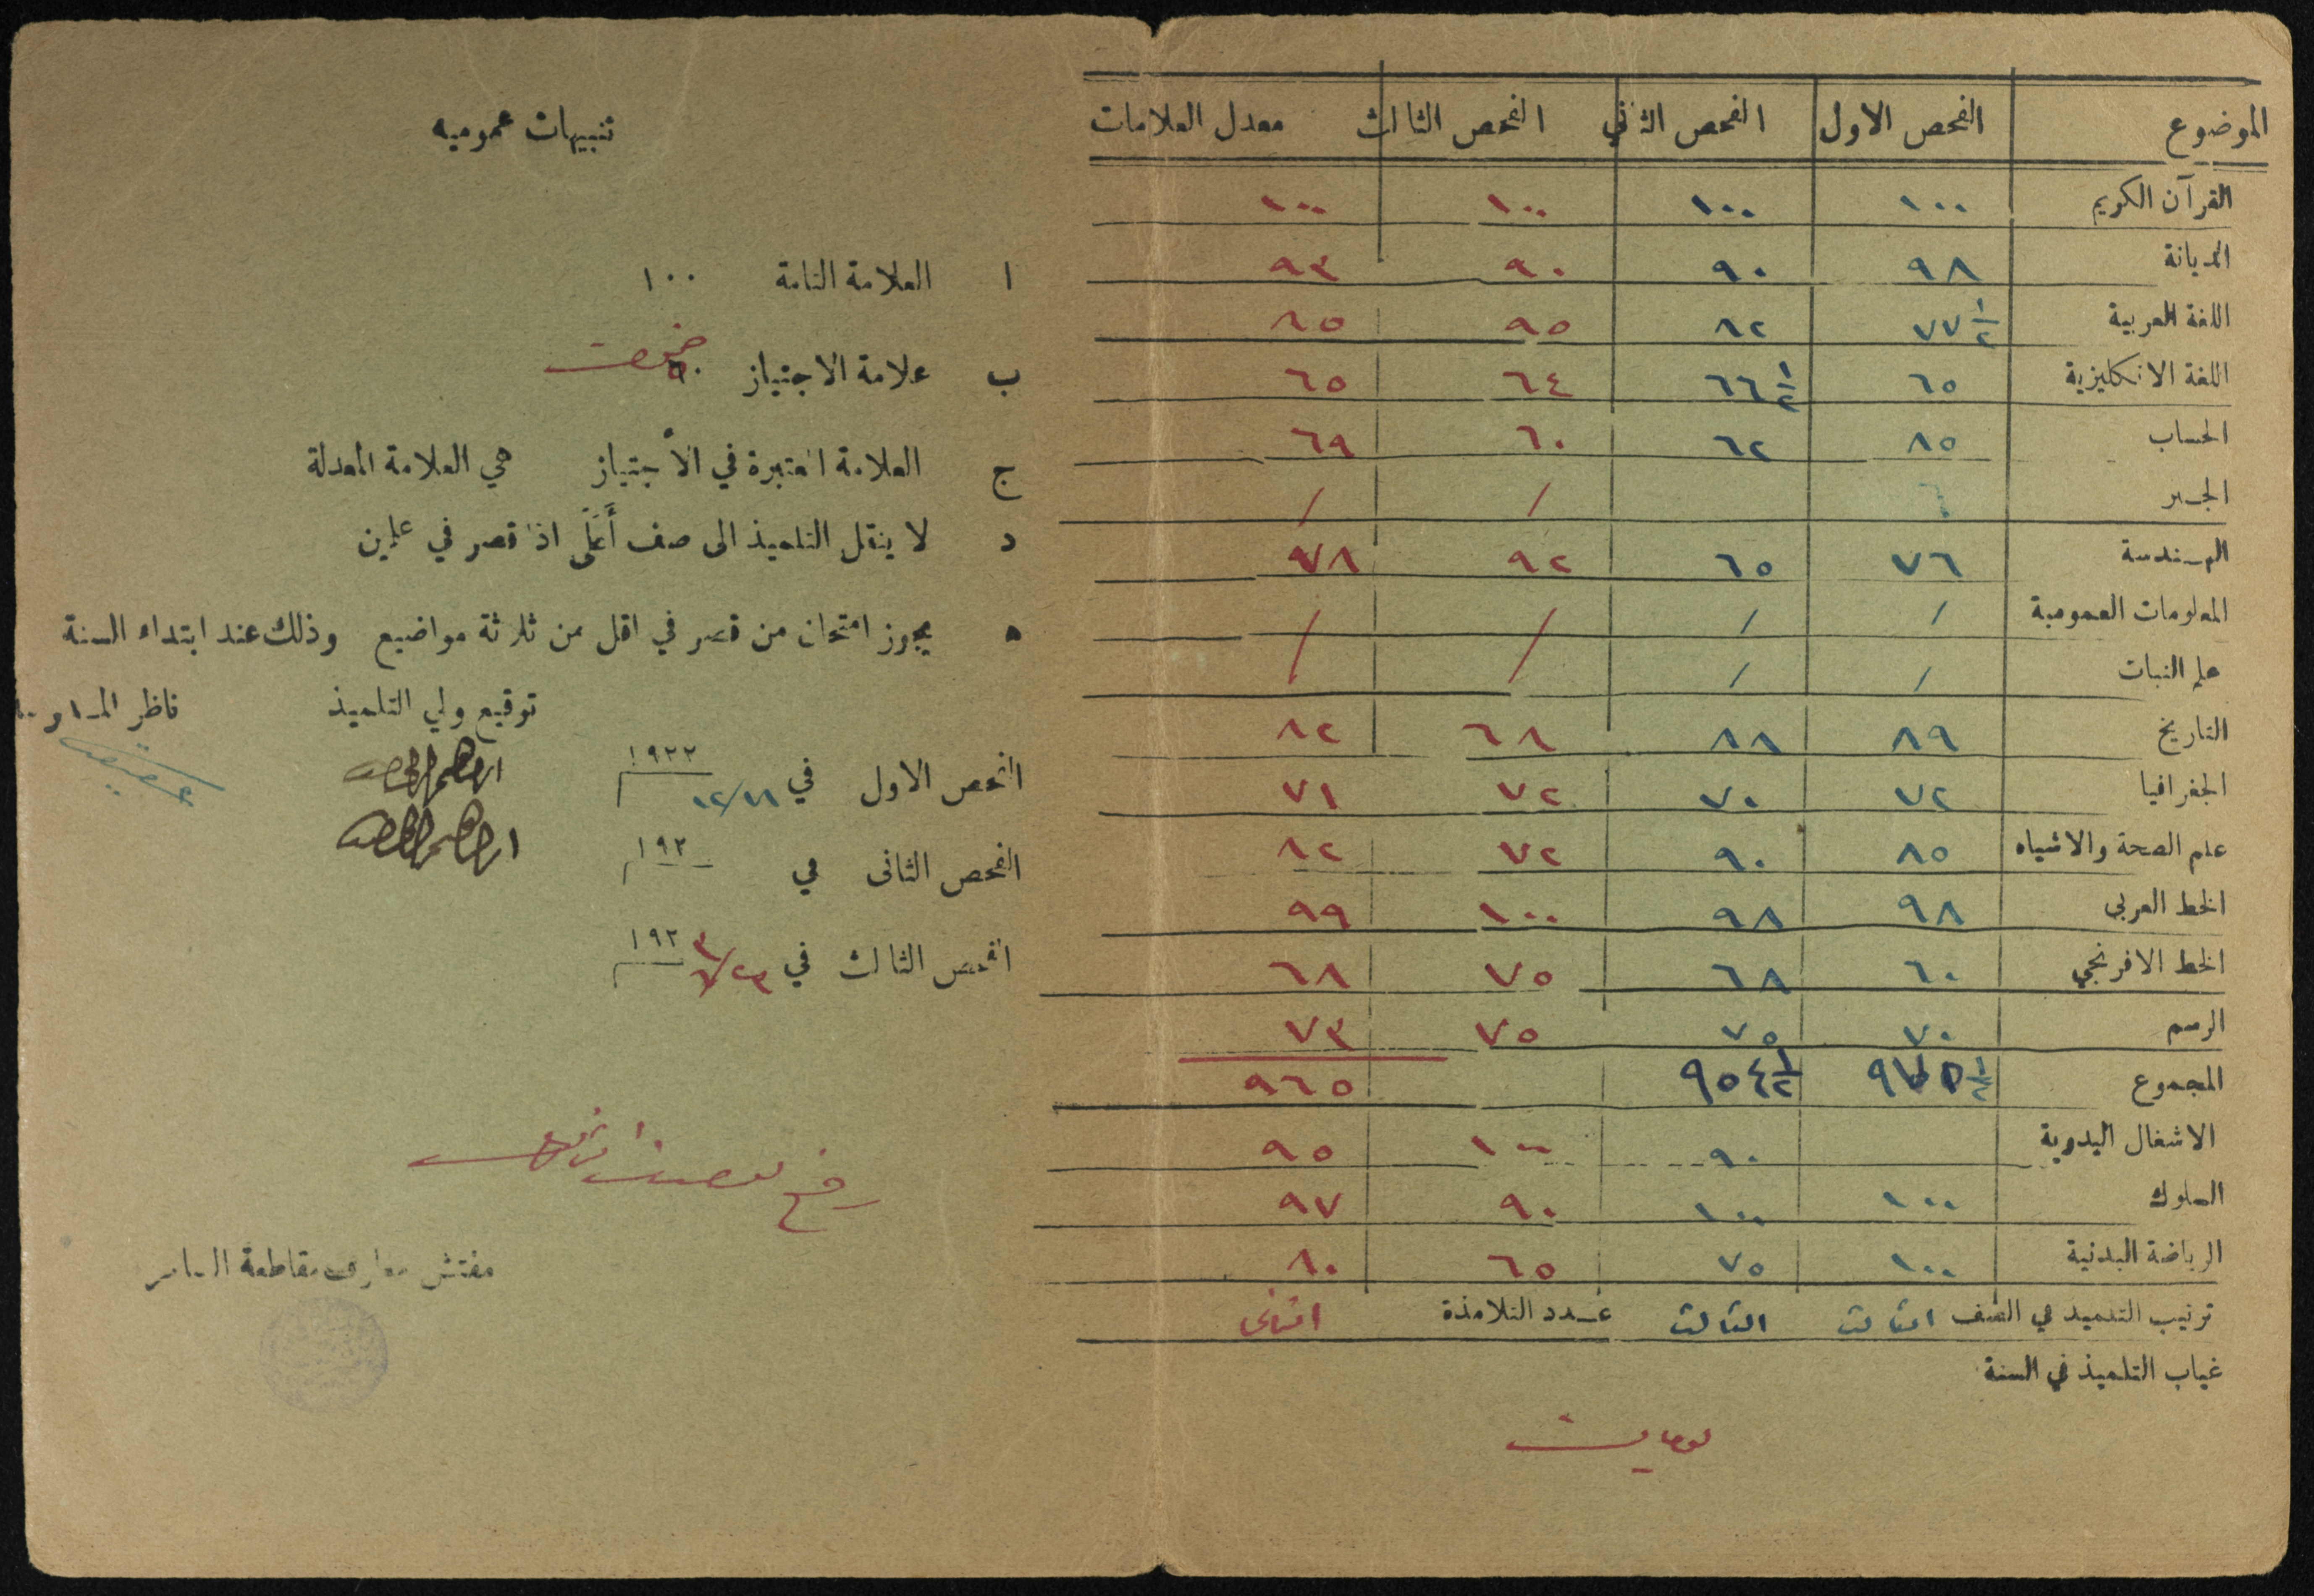 الموضوع الفحص الاول الفحص الثاني الفحص الثالث معدل العلامات
القرآن الكريم ١٠٠ ١٠٠ ١٠٠ ١٠٠
الديانة ٩٨ ٩٠ ٩٠ ٩٣
اللغة العربية ٧٧ ١/٢ ٨٢ ٩٥ ٨٥
اللغة الانكليزية ٦٥ ٦٦ ١/٢ ٦٤ ٦٥
الحساب ٨٥ ٦٢ ٦٠ ٦٩
الجبر / /
الهندسة ٧٦ ٦٥ ٩٢ ٧٨
المعلومات العمومية / / / /
علم النبات / / / /
التاريخ ٨٩ ٨٨ ٦٨ ٨٢
الجغرافيا ٧٢ ٧٠ ٧٢ ٧١
علم الصحة والاشياء ٨٥ ٩٠ ٧٢ ٨٢
الخط العربي ٩٨ ٩٨ ١٠٠ ٩٩
الخط الافرنجي ٦٠ ٦٨ ٧٥ ٦٨
الرسم ٧٠ ٧٥ ٧٥ ٧٣
المجموع ٩٧٥ ١/٢ ٩٥٤ ١/٢ ٩٦٥
الاشغال اليدوية ٩٠ ١٠٠ ٩٥
السلوك ١٠٠ ١٠٠ ٩٠ ٩٧
الرياضة البدنية ١٠٠ ٧٥ ٦٥ ٨٠
ترتيب التلميذ في الصف الثالث الثالث عدد التلامذة الثاني
غياب التلميذ في السنة
تنبيهات عموميه
ا العلامة التامة ١٠٠
ب علامة الاجتياز
ج العلامة المعتبرة في الاجتياز هي العلامة المعدلة
د لا ينقل التلميذ الى صف أعلى اذا قصر في علمين
ه يجوز امتحان من قصر في اقل من ثلاثة مواضيع وذلك عند ابتداء السنة
توقيع ولي التلميذ ناظر
الفحص الاول في ١٩٢٢
الفحص الثاني في ١٩٢
الفحص الثالث في ١٩٢٣ ٦/٢٣
مفتش معارف مقاطعة